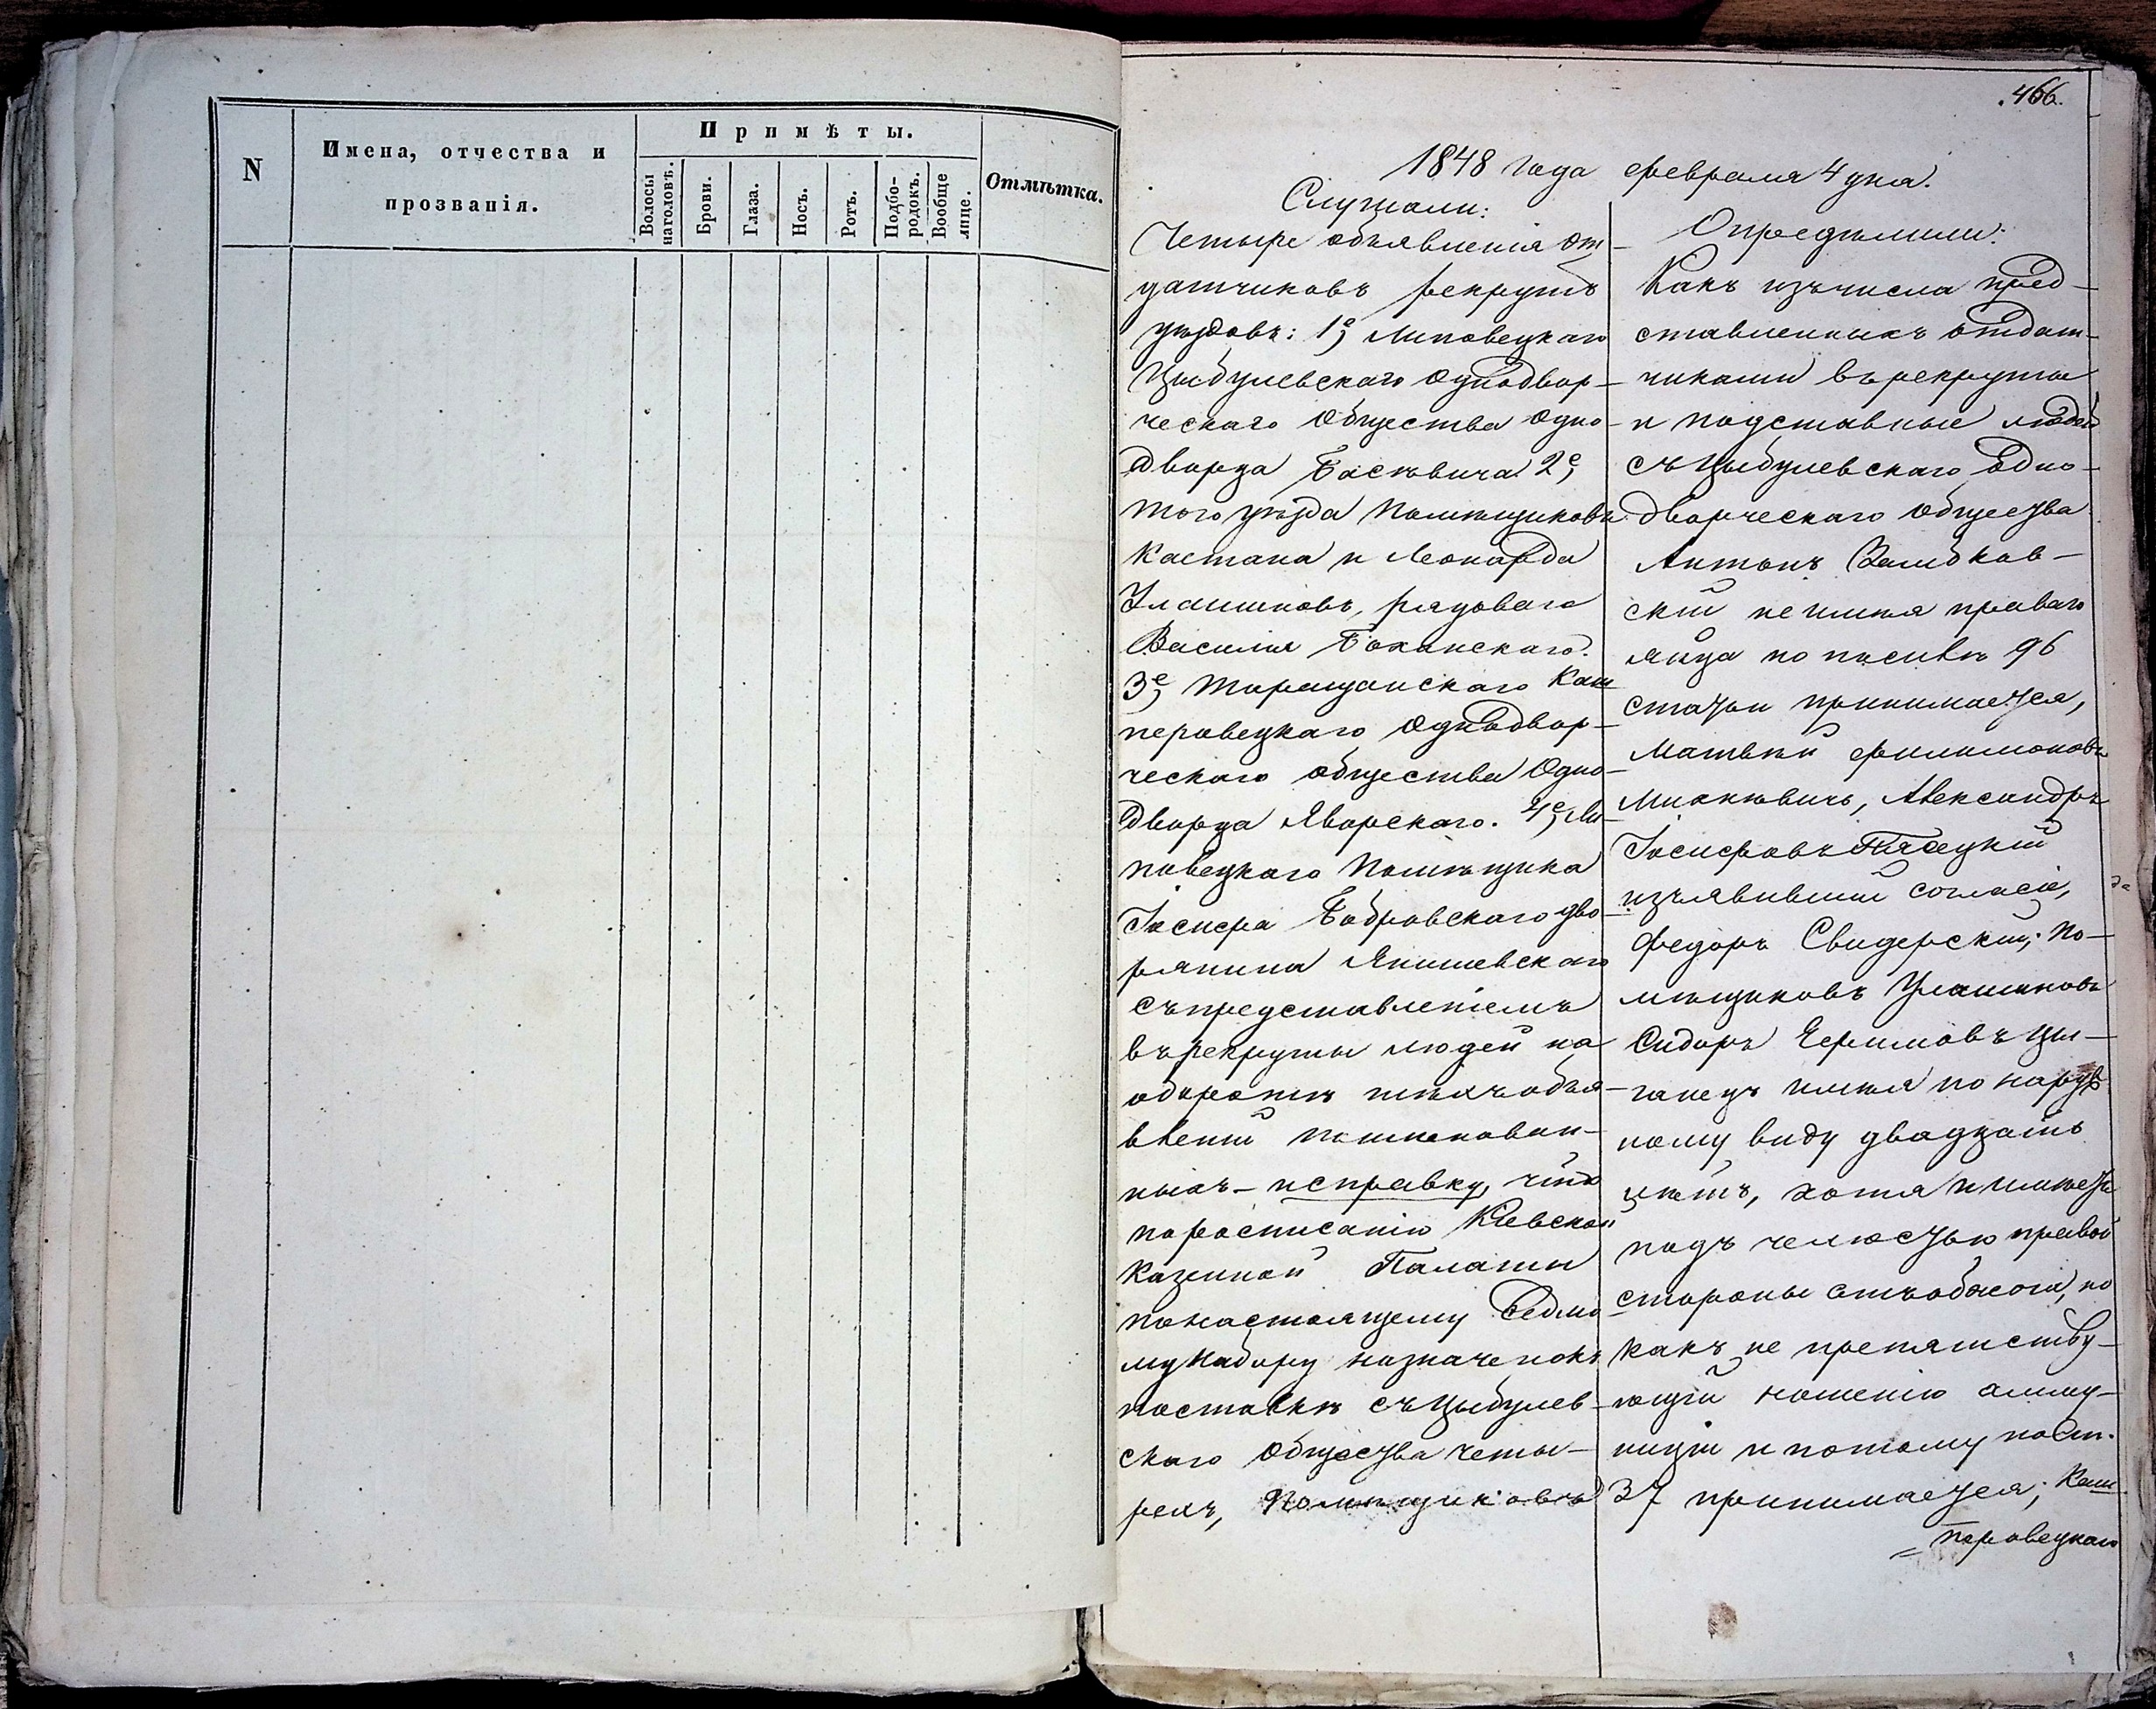 N
Имена, отчества и
прозванія.
Примѣты.
Волосы
наголовѣ.
Брови.
Глаза.
Носъ.
Ротъ.
Подбо-
родокъ.
Вообще
лице.
Отмѣтка.
466.
1848 года февраля 4 дня.
Слушали:
Четыре объявленія от-
датчиковъ рекрутъ
уѣздовъ: 1е, Липовецкаго
Цыбулевскаго однодвор-
ческаго Общества одно-
дворца Баскевича 2е,
того уѣзда Помѣщиковъ
Каетана и Леонарда
Улашиновъ, рядоваго
Василія Боханскаго.
3е, Таращанскаго Каш
перовецкаго однодвор-
ческаго общества Одно-
дворца Яворскаго. 4е, Ли-
повецкаго Помѣщика
Іосифа Бобровскаго дво-
рянина Янишевскаго
съ представленіемъ
въ рекруты людей на
оборотѣ тѣхъ объя-
вленій поименован-
ныхъ – и справку, что
по росписанію Кіевской
Казенной Палаты
по настоящему Седмо
му Набору назначенокъ
поставкѣ съ Цыбулев-
скаго Общества четы-
рехъ, Помѣщиковъ
Опредѣлили:
Какъ изъ числа пред-
ставленныхъ отдат-
чиками въ рекруты
и подставные людей
съ Цыбулевскаго Одно-
дворческаго общества
Антонъ
скій не имѣя праваго
яица по посивкѣ 96
статьи принимается,
Матвѣй Филимоновъ
Александръ
Іосифовъ
изъявившій согласіе,
Федоръ Свидерскій; по-
мѣщиковъ Улашиновъ
Сидоръ Цы-
ганецъ имѣя по наруж
ному виду двадцать
лѣтъ, хотя и имѣетъ
подъ челюстью правой
стороны отъ обжога, но
какъ не препятству-
ющій ношенію амму-
ниціи и потому по ст.
37 принимается; Каш
= перовецкаго